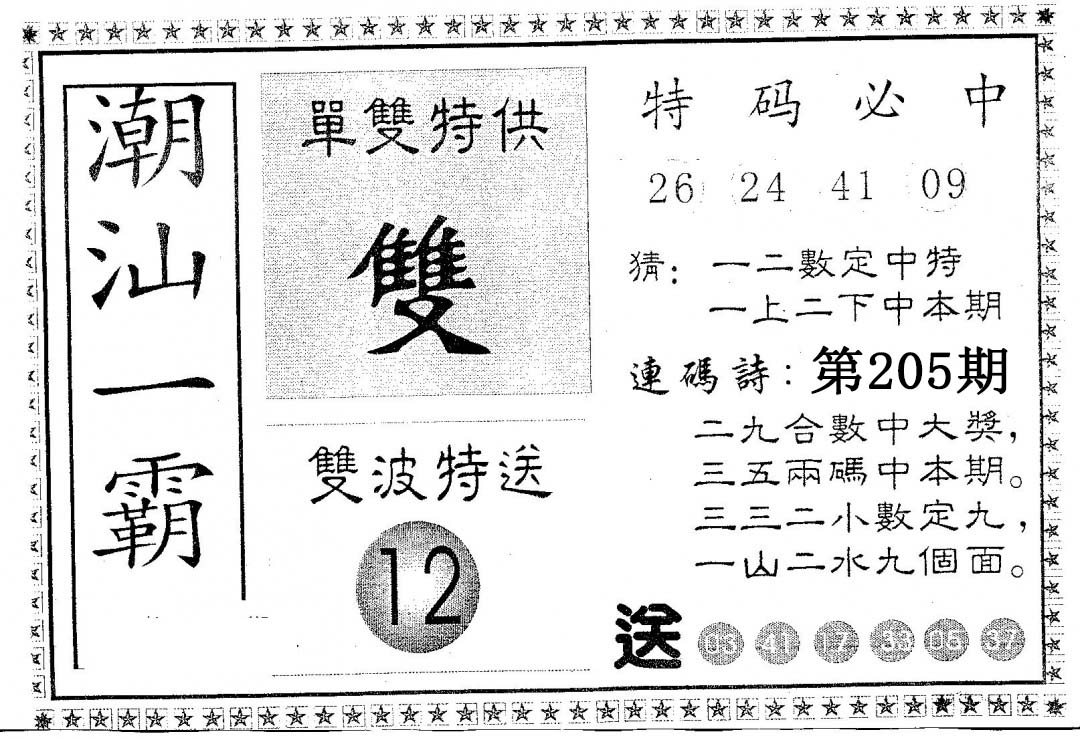 潮汕一霸
單雙特供
雙
雙波特送
12
特码必中
26 24 41 09
猜：一二數定中特
一上二下中本期
連碼詩：第205期
二九合數中大獎，
三五兩碼中本期。
三三二小數定九，
一山二水九個面。
送 03 41 17 33 05 37